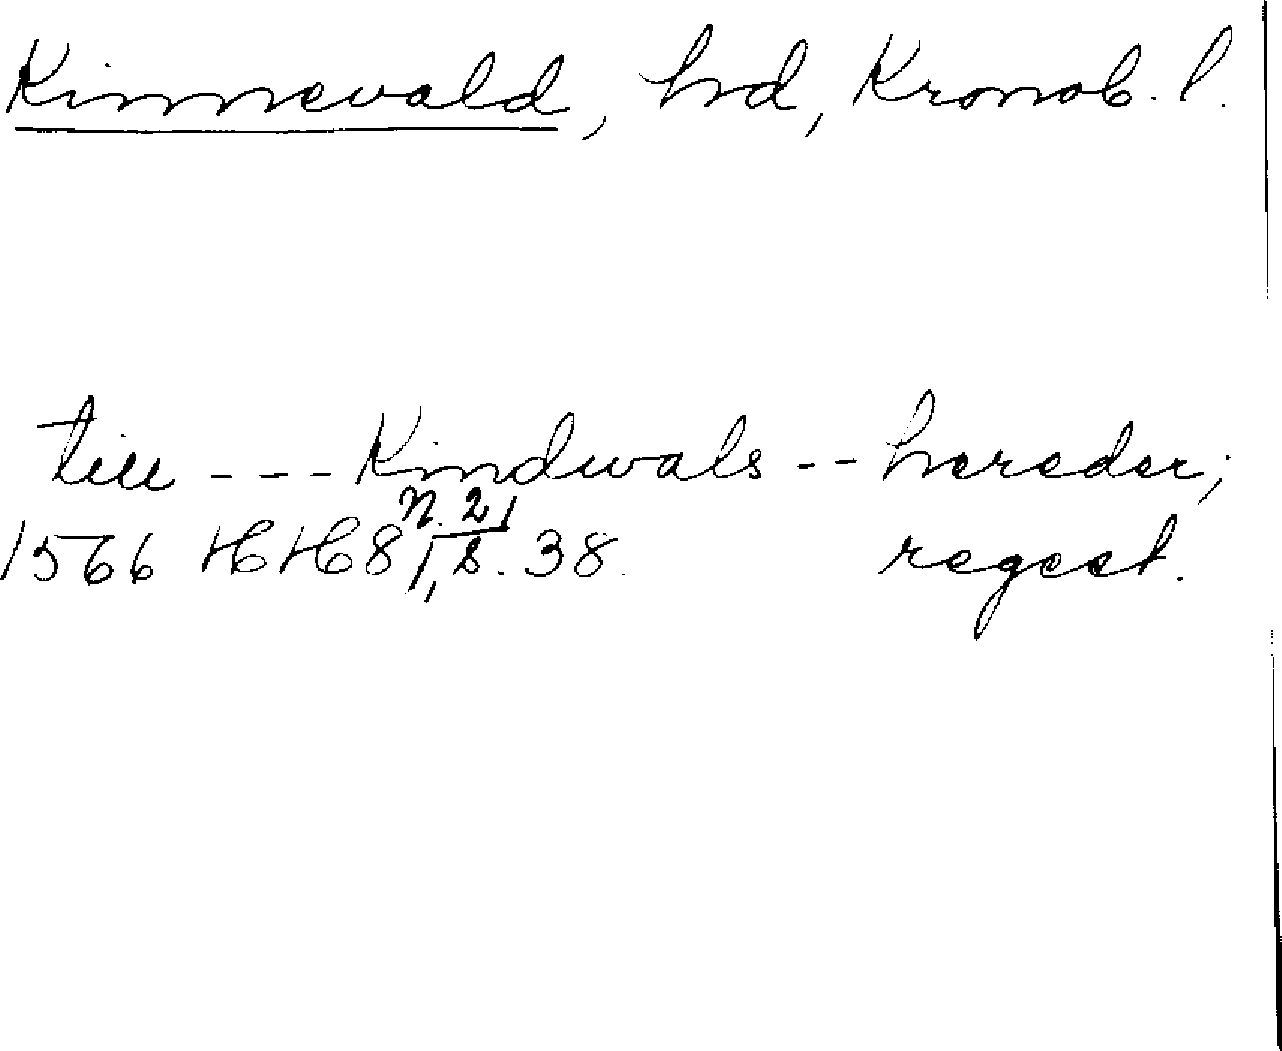 Kinnevald, hrd, Kronob. l.
till --- Kindwals -- hereder;
n. 2,
1566 HH 81, s. 38. regest.